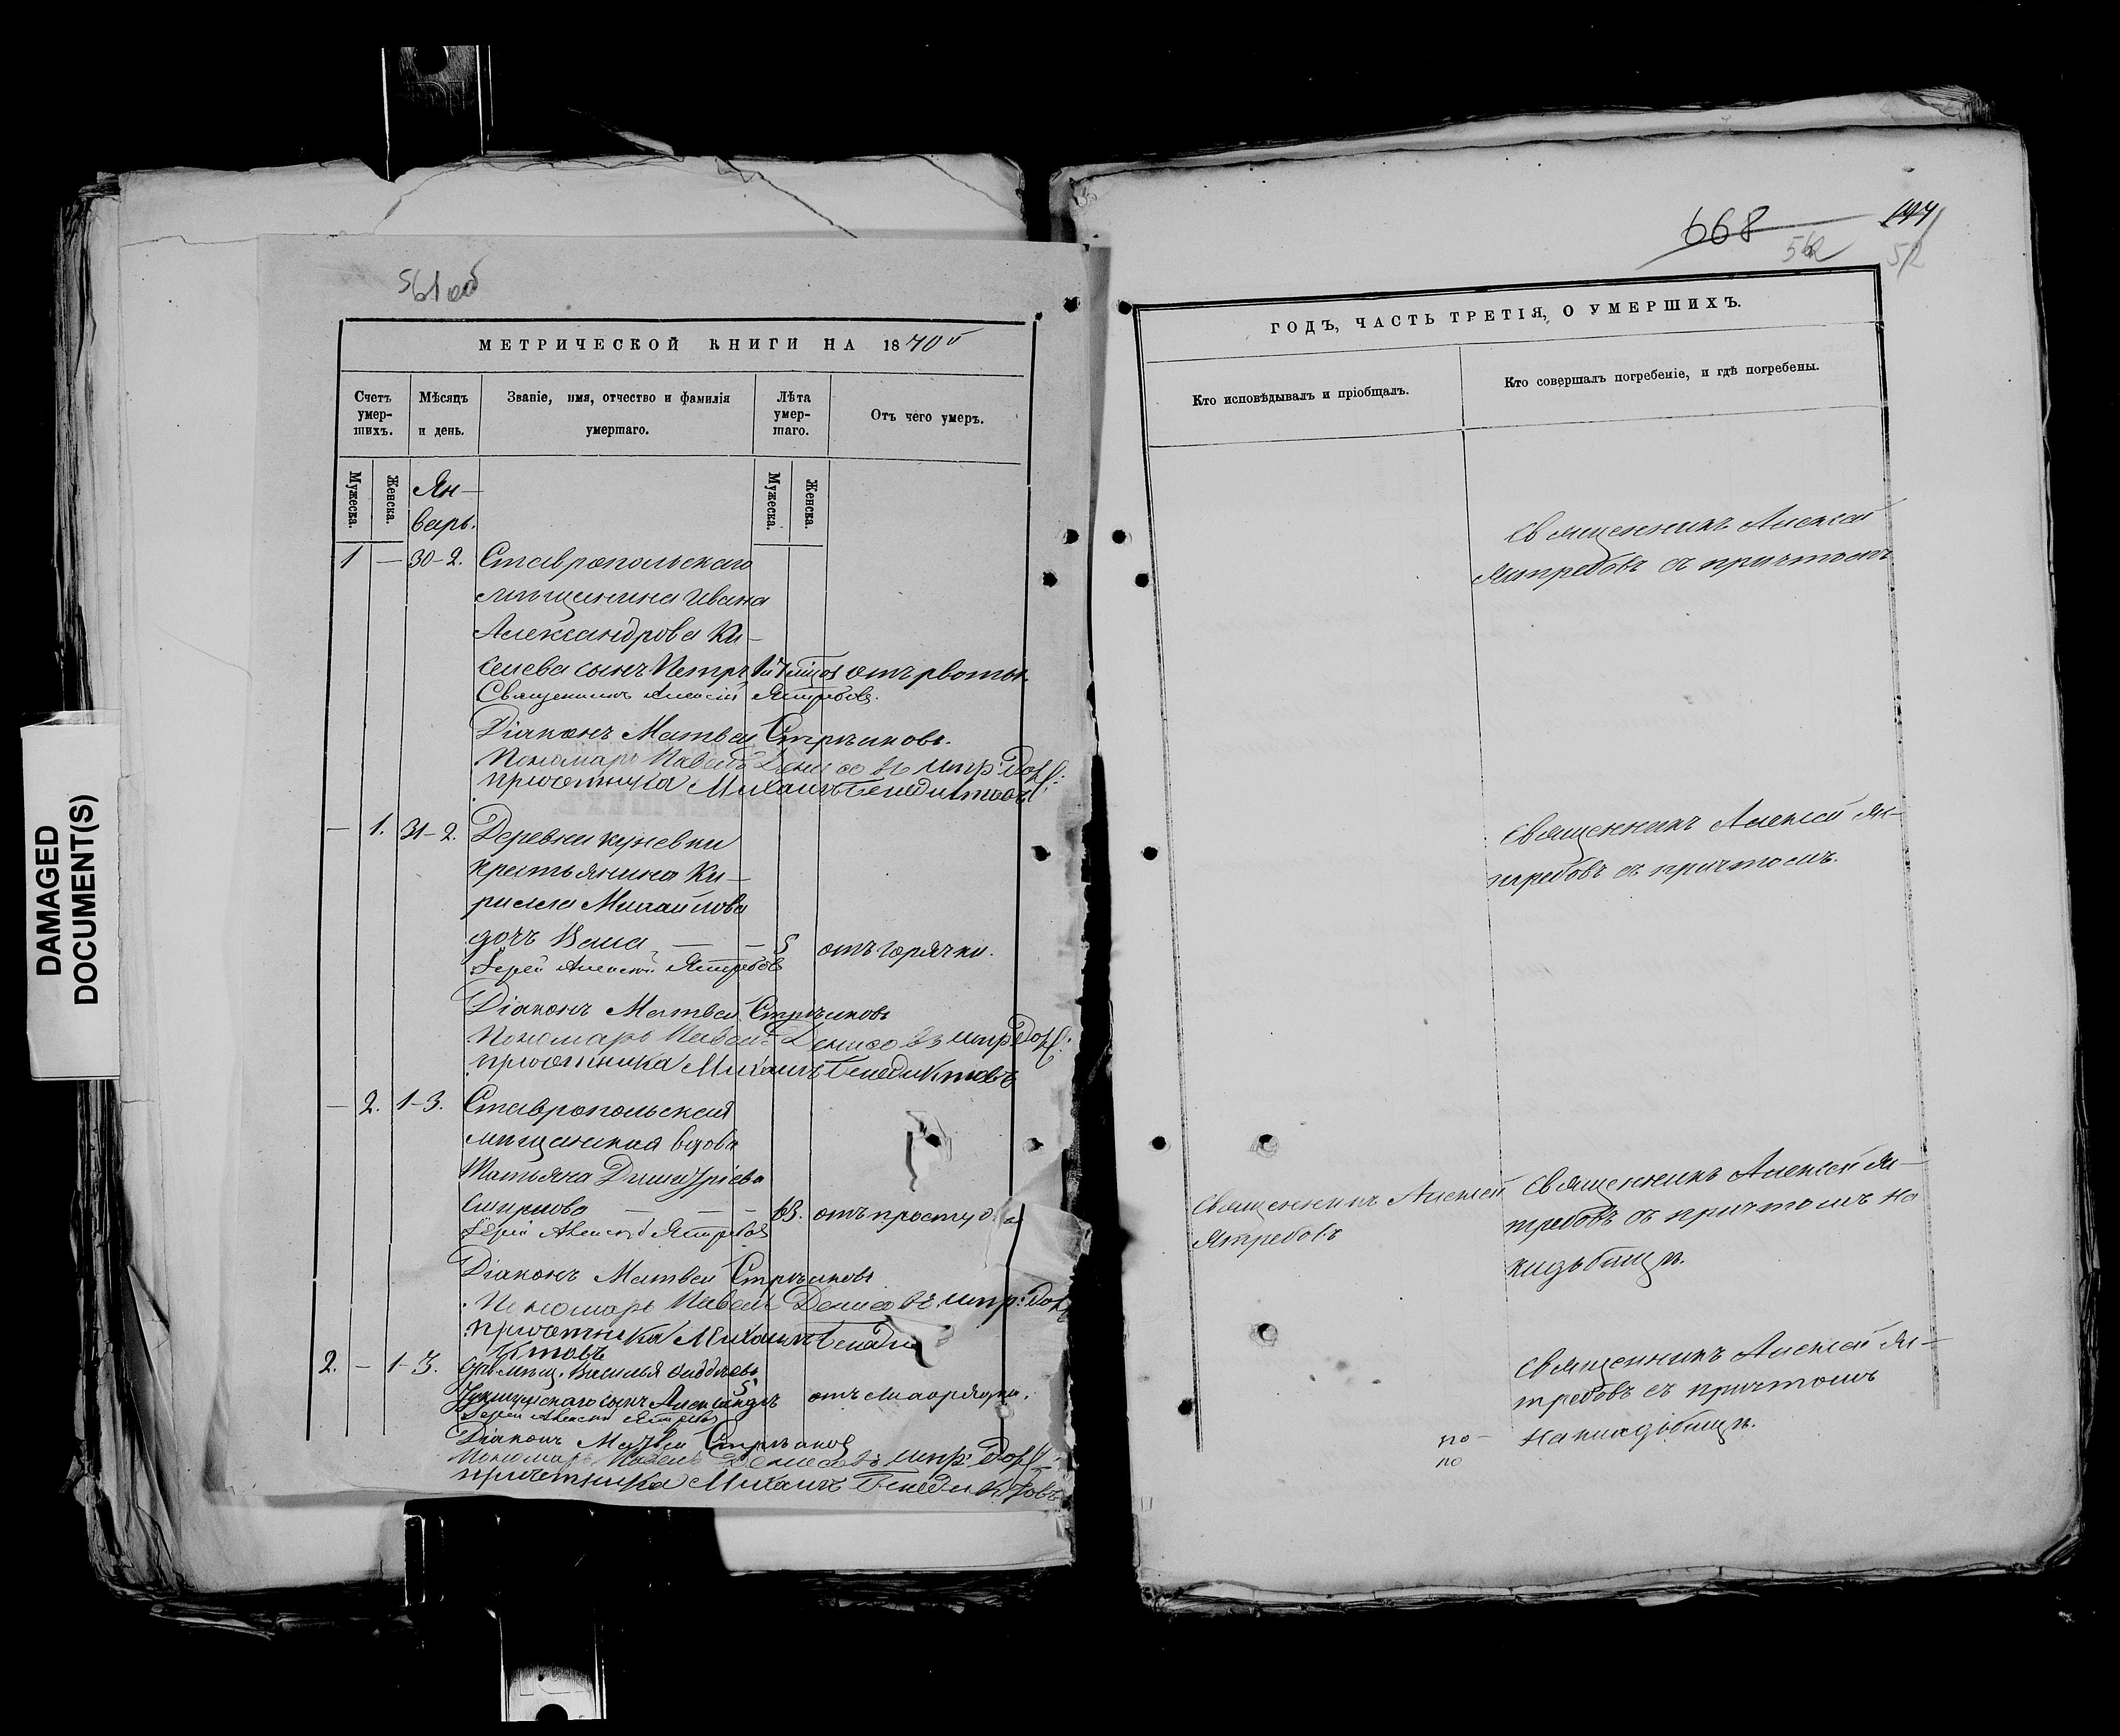 561 об
МЕТРИЧЕСКОЙ КНИГИ НА 1870й
Счетъ умер-шихъ.
Мѣсяцъ и день.
Званіе, имя, отчество и фамилія умершаго.
Лѣта умер-шаго.
Отъ чего умеръ.
Мужеска.
Женска.
Мужеска.
Женска.
Ян-
варь.
1 — 30-2. Ставропольскаго
мѣщанина Ивана
Александрова Ки-
селева сынъ Петръ отъ рвоты.
Священникъ Алексій Ястребовъ.
Діаконъ Матвей Стрѣлковъ.
Пономарь Павелъ Денисовъ
причетника Михаилъ Бенедиктовъ
— 1. 31-2. Деревни Куневки
крестьянина Ки-
рилла Михайлова
дочь — — 5 отъ горячки.
Іерей Алексій Ястребовъ
Діаконъ Матвей Стрѣлковъ
Пономарь Павелъ Денисовъ
причетника Михаилъ Бенедиктовъ
— 2. 1-3. Ставропольская
мѣщанская вдова
Татьяна Димитріева
Смирнова — — — 63. отъ простуды
Іерей Алексій Ястребовъ
Діаконъ Матвей Стрѣлковъ
Пономарь Павелъ Денисовъ
причетника Михаилъ Бенеди
ктовъ
2. — 1-3. мѣщ. Василья
сынъ Александръ 5
Іерей Алексій Ястребовъ
Діаконъ Матвей Стрѣлковъ
Пономарь Павелъ Денисовъ
причетника Михаилъ Бенедиктовъ
668
562
52
ГОДЪ, ЧАСТЬ ТРЕТІЯ, О УМЕРШИХЪ.
Кто исповѣдывалъ и пріобщалъ.
Кто совершалъ погребеніе, и гдѣ погребены.
Священникъ Алексѣй
Ястребовъ съ причтомъ
Священникъ Алексѣй Яс-
требовъ съ причтомъ.
Священникъ Алексѣй
Ястребовъ
Священникъ Алексѣй Яс-
требовъ съ причтомъ на
кладбищѣ.
Священникъ Алексѣй Яс-
требовъ съ причтомъ
на кладбищѣ.
по-
по
DAMAGED
DOCUMENT(S)